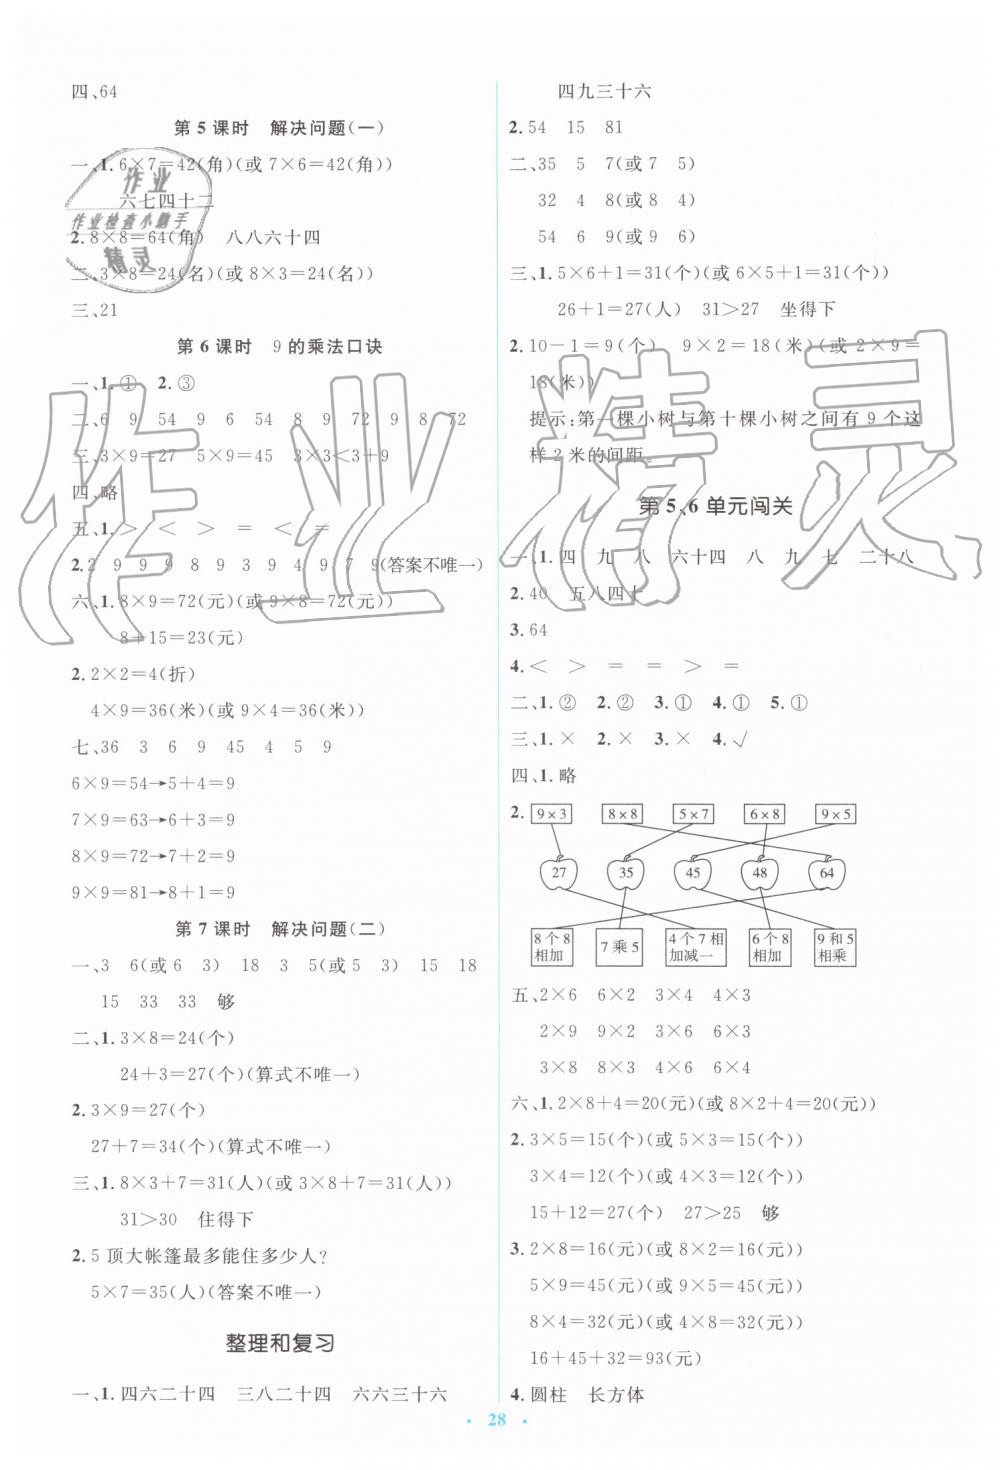 四、64
第5课时　解决问题(一)
一、1. 6×7=42(角)(或7×6=42(角))
六七四十二
2. 8×8=64(角)　八八六十四
二、3×8=24(名)(或8×3=24(名))
三、21
第6课时　9的乘法口诀
一、1. ①　2. ③
二、6　9　54　9　6　54　8　9　72　9　8　72
三、3×9=27　5×9=45　3×3<3+9
四、略
五、1. >　<　>　=　<　=
2. 2　9　9　9　8　9　3　9　4　9　7　9(答案不唯一)
六、1. 8×9=72(元)(或9×8=72(元))
8+15=23(元)
2. 2×2=4(折)
4×9=36(米)(或9×4=36(米))
七、36　3　6　9　45　4　5　9
6×9=54→5+4=9
7×9=63→6+3=9
8×9=72→7+2=9
9×9=81→8+1=9
第7课时　解决问题(二)
一、3　6(或6　3)　18　3　5(或5　3)　15　18
15　33　33　够
二、1. 3×8=24(个)
24+3=27(个)(算式不唯一)
2. 3×9=27(个)
27+7=34(个)(算式不唯一)
三、1. 8×3+7=31(人)(或3×8+7=31(人))
31>30　住得下
2. 5顶大帐篷最多能住多少人?
5×7=35(人)(答案不唯一)
整理和复习
一、1. 四六二十四　三八二十四　六六三十六
四九三十六
2. 54　15　81
二、35　5　7(或7　5)
32　4　8(或8　4)
54　6　9(或9　6)
三、1. 5×6+1=31(个)(或6×5+1=31(个))
26+1=27(人)　31>27　坐得下
2. 10-1=9(个)　9×2=18(米)(或2×9=
18(米))
提示:第一棵小树与第十棵小树之间有9个这
样2米的间距。
第5、6单元闯关
一、1. 四　九　八　六十四　八　九　七　二十八
2. 40　五八四十
3. 64
4. <　>　=　=　>　=
二、1. ②　2. ②　3. ①　4. ①　5. ①
三、1. ×　2. ×　3. ×　4. √
四、1. 略
2. 9×3　8×8　5×7　6×8　9×5
27　35　45　48　64
8个8相加　7乘5　4个7相加减一　6个8相加　9和5相乘
五、2×6　6×2　3×4　4×3
2×9　9×2　3×6　6×3
3×8　8×3　4×6　6×4
六、1. 2×8+4=20(元)(或8×2+4=20(元))
2. 3×5=15(个)(或5×3=15(个))
3×4=12(个)(或4×3=12(个))
15+12=27(个)　27>25　够
3. 2×8=16(元)(或8×2=16(元))
5×9=45(元)(或9×5=45(元))
8×4=32(元)(或4×8=32(元))
16+45+32=93(元)
4. 圆柱　长方体
· 28 ·
作业
作业检查小助手
精灵
作业精灵